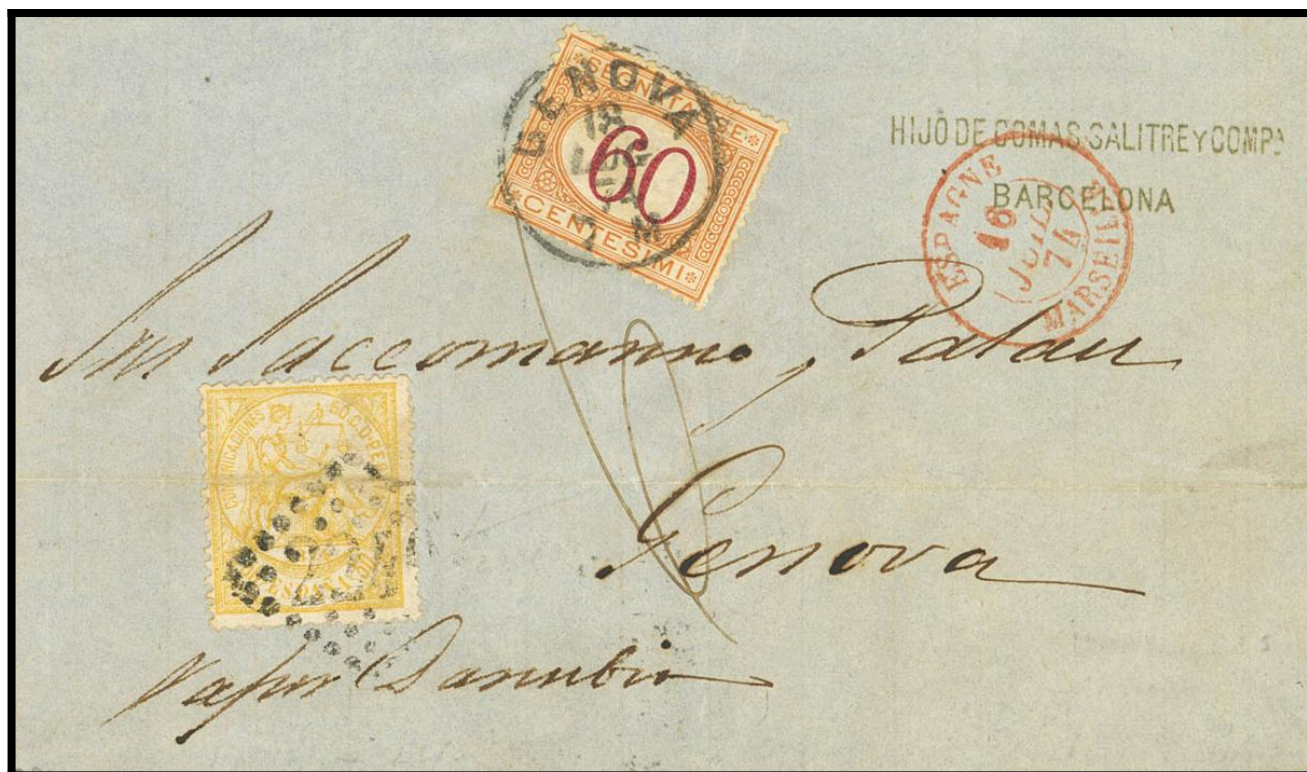 GENOVA
18
LUG
74
7 M
SEGNATASSE
60
CENTESIMI
HIJO DE COMAS SALITRE Y COMPA
BARCELONA
ESPAGNE
16
JUIL
74
MARSEILLE
Sres Saccomanno, Palau
COMUNICACIONES
50.C.D.PESETA
Genova
Vapor Danubio